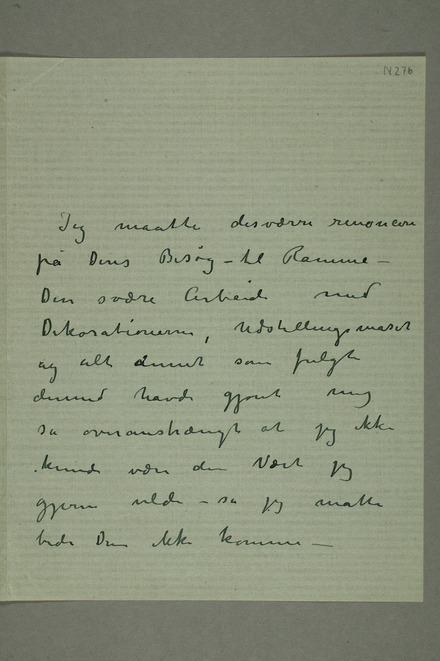 N 276
Jeg maatte desværre renoncere
på Deres Besøg – til Ramme –
Den svære Arbeide med
Dekorationerne, Udstillingsmaset
og alt annet som fulgte
dermed havde gjort mig
så overanstrængt at jeg ikke
kunde være den Vært jeg
gjerne vilde – så jeg måtte
bede Dem ikke komme –